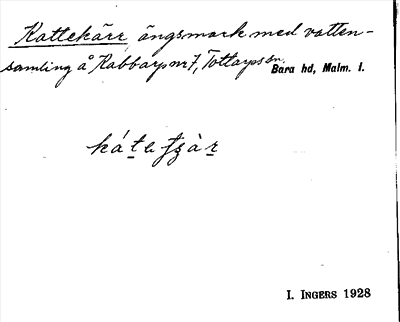 Kattekärr ängsmark med vatten-
samling å Kabbarp nr 7, Tottarps sn.
Bara hd, Malm. l.
I. INGERS 1928